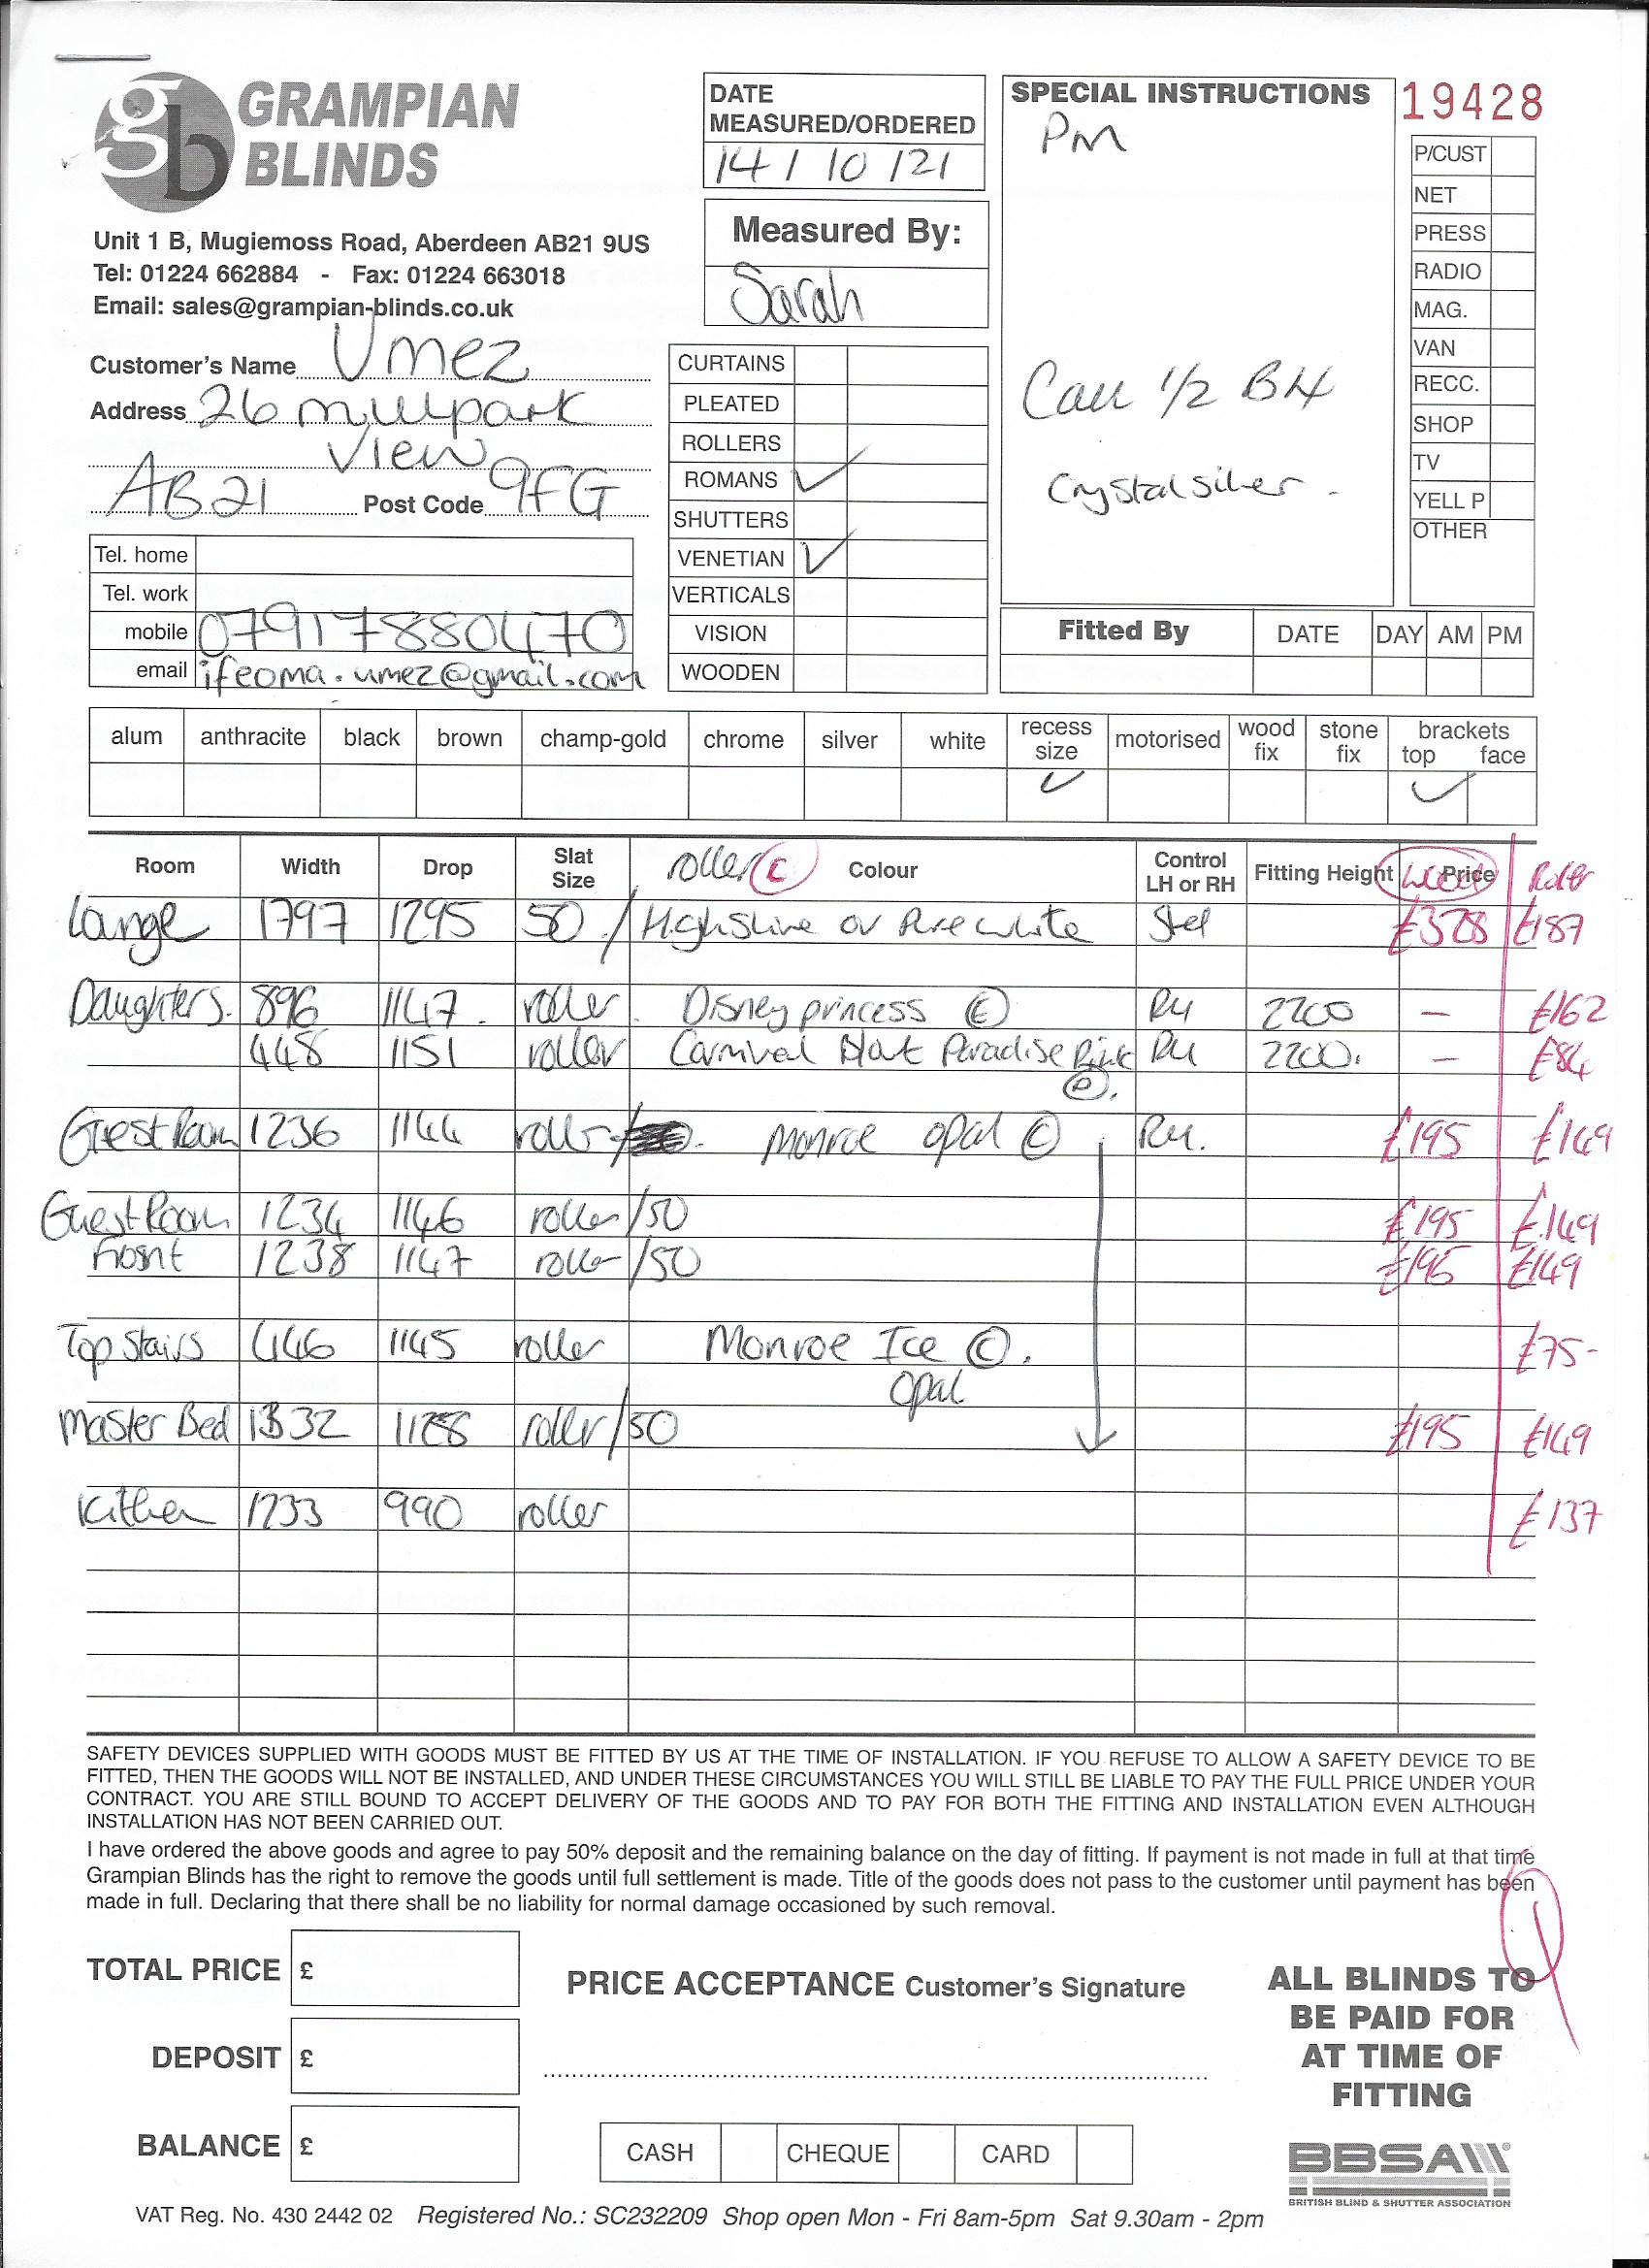 GRAMPIAN
BLINDS
Unit 1 B, Mugiemoss Road, Aberdeen AB21 9US
Tel: 01224 662884 - Fax: 01224 663018
Email: sales@grampian-blinds.co.uk
Customer's Name Umez
Address 26 millpark
View
AB21 Post Code 9FG
Tel. home
Tel. work
mobile 07917880470
email ifeoma.umez@gmail.com
DATE
MEASURED/ORDERED
14 / 10 /21
Measured By:
Sarah
CURTAINS
PLEATED
ROLLERS
ROMANS ✓
SHUTTERS
VENETIAN ✓
VERTICALS
VISION
WOODEN
SPECIAL INSTRUCTIONS
Pm
Call 1/2 B4
Crystal silver
19428
P/CUST
NET
PRESS
RADIO
MAG.
VAN
RECC.
SHOP
TV
YELL P
OTHER
Fitted By DATE DAY AM PM
alum anthracite black brown champ-gold chrome silver white recess size motorised wood fix stone fix brackets top face
✓ ✓
Room Width Drop Slat Size roller C Colour Control LH or RH Fitting Height Price
Lounge 1797 1295 50 / Highshine or Pure white £187
Daughters. 896 1147 roller Disney princess E RH 2200 — £162
448 1151 roller Carnival Paradise Pink RH 2200. — £84
Guest Room 1236 1144 Monroe opal C RH. £195 £149
Guest Room 1234 1146 roller/50 £195 £149
Front 1238 1147 roller/50 £195 £149
Top Stairs 446 1145 roller Monroe Ice C. £75-
opal
Master Bed 1332 roller/50 £195 £149
Kitchen 990 roller £137
SAFETY DEVICES SUPPLIED WITH GOODS MUST BE FITTED BY US AT THE TIME OF INSTALLATION. IF YOU REFUSE TO ALLOW A SAFETY DEVICE TO BE
FITTED, THEN THE GOODS WILL NOT BE INSTALLED, AND UNDER THESE CIRCUMSTANCES YOU WILL STILL BE LIABLE TO PAY THE FULL PRICE UNDER YOUR
CONTRACT. YOU ARE STILL BOUND TO ACCEPT DELIVERY OF THE GOODS AND TO PAY FOR BOTH THE FITTING AND INSTALLATION EVEN ALTHOUGH
INSTALLATION HAS NOT BEEN CARRIED OUT.
I have ordered the above goods and agree to pay 50% deposit and the remaining balance on the day of fitting. If payment is not made in full at that time
Grampian Blinds has the right to remove the goods until full settlement is made. Title of the goods does not pass to the customer until payment has been
made in full. Declaring that there shall be no liability for normal damage occasioned by such removal.
TOTAL PRICE £
DEPOSIT £
BALANCE £
PRICE ACCEPTANCE Customer's Signature
CASH CHEQUE CARD
ALL BLINDS TO
BE PAID FOR
AT TIME OF
FITTING
BBSA
BRITISH BLIND & SHUTTER ASSOCIATION
VAT Reg. No. 430 2442 02 Registered No.: SC232209 Shop open Mon - Fri 8am-5pm Sat 9.30am - 2pm